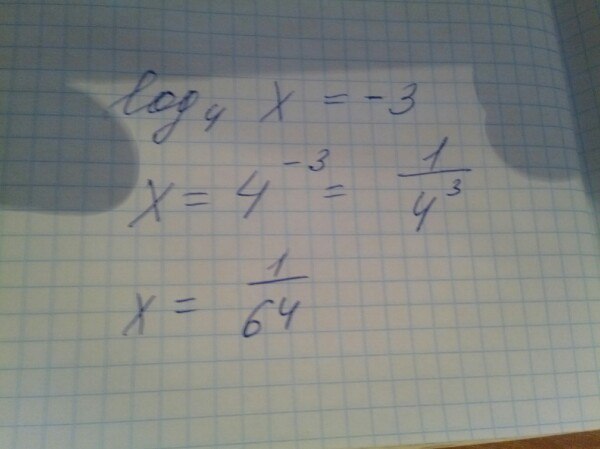 log₄ x = -3
x = 4⁻³ = 1/4³
x = 1/64